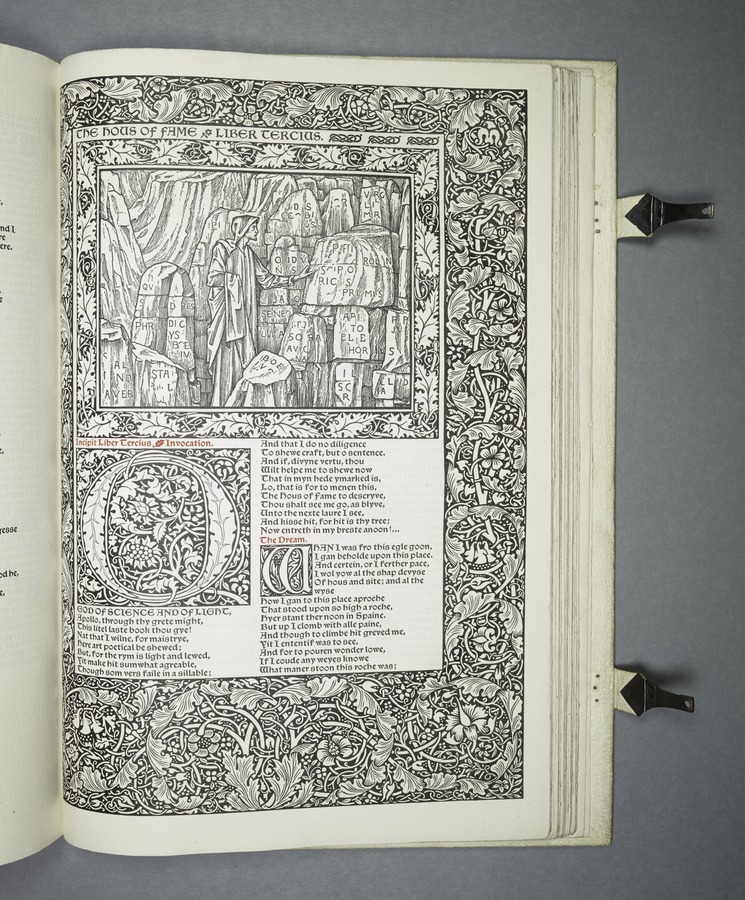 THE HOUS OF FAME LIBER TERCIUS.
Incipit Liber Tercius. Invocation.
O
GOD OF SCIENCE AND OF LIGHT,
Apollo, through thy grete might,
This litel laste book thou gye!
Nat that I wilne, for maistrye,
Here art poetical be shewed;
But, for the rym is light and lewed,
Yit make hit sumwhat agreable,
Though som vers faile in a sillable;
And that I do no diligence
To shewe craft, but o sentence.
And if, divyne vertu, thou
Wilt helpe me to shewe now
That in myn hede ymarked is,
Lo, that is for to menen this,
The Hous of Fame to descryve,
Thou shalt see me go, as blyve,
Unto the nexte laure I see,
And kisse hit, for hit is thy tree;
Now entreth in my breste anoon!...
The Dream.
WHAN I was fro this egle goon,
I gan beholde upon this place.
And certein, or I ferther pace,
I wol yow al the shap devyse
Of hous and site; and al the
wyse
How I gan to this place aproche
That stood upon so high a roche,
Hyer stant ther noon in Spaine.
But up I clomb with alle paine,
And though to climbe hit greved me,
Yit I ententif was to see,
And for to pouren wonder lowe,
If I coude any weyes knowe
What maner stoon this roche was: